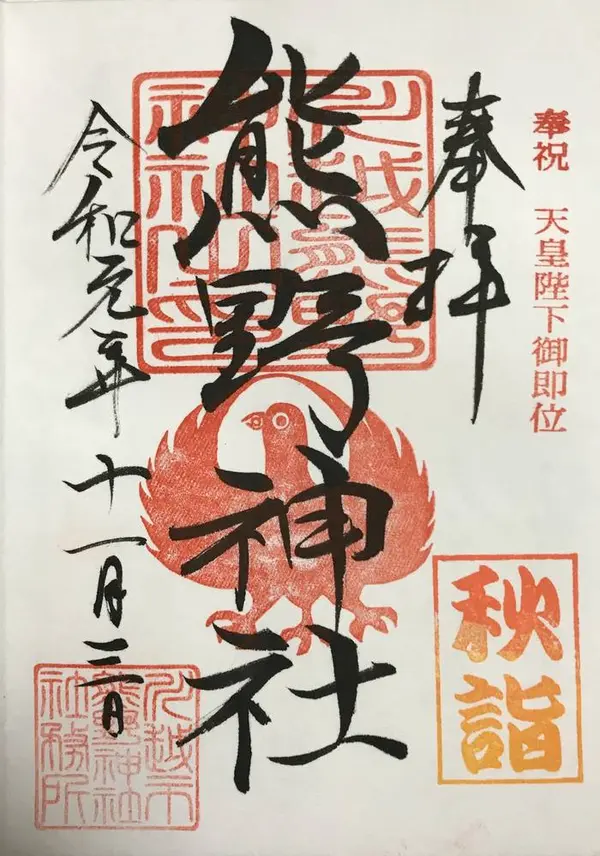 奉祝 天皇陛下御即位
奉拝
熊野神社
令和元年十一月三日
秋詣
川越熊野神社之印
川越市
熊野神社
社務所